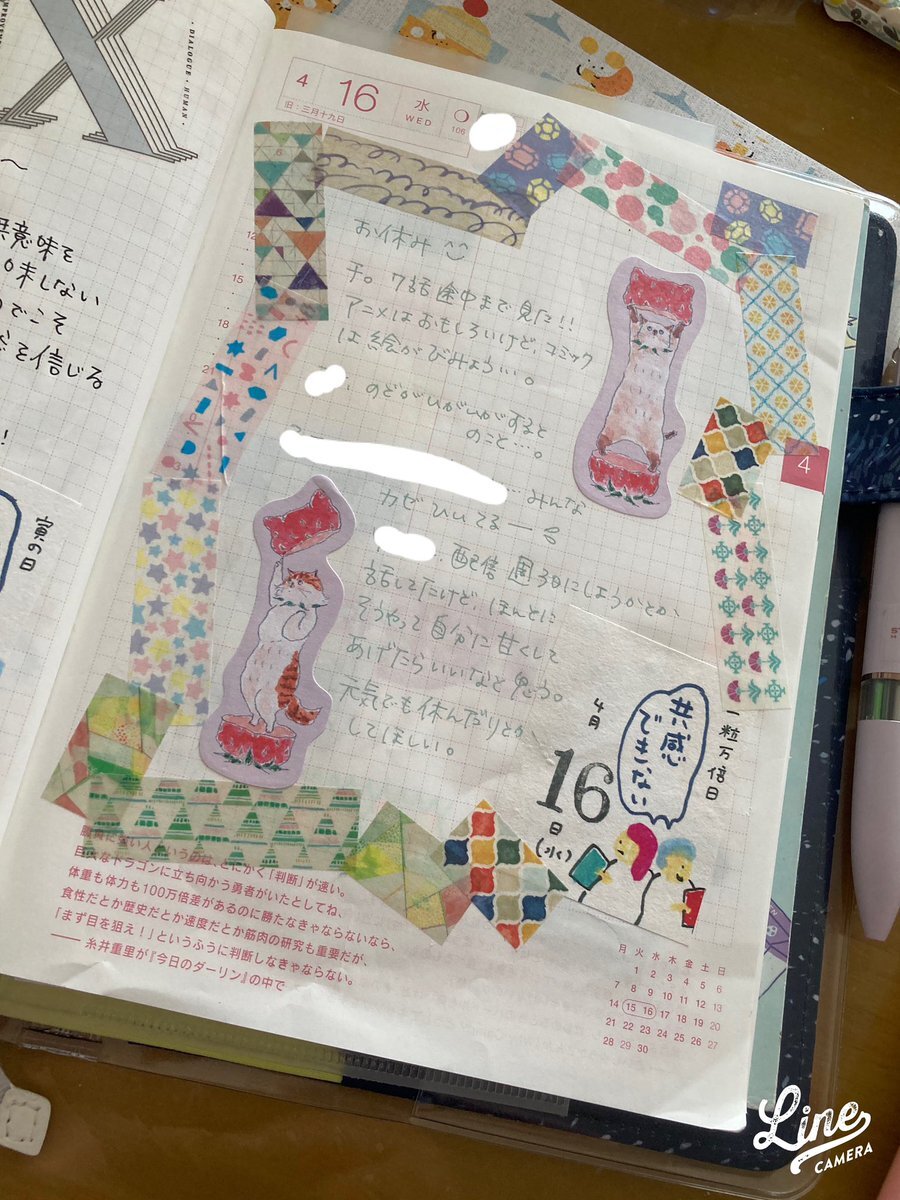 IMPROVEMENT
X
・DIALOGUE・HUMAN・
〜
意味を
味しない
でこそ
を信じる
!
寅の日
4 16 水
WED 106
旧:三月十九日
お休み
チ。7話途中まで見た!!
アニメはおもしろいけど、コミック
は絵がびみょう…。
のどがいがいがすると
のこと…。
…みんな
カゼひいてるー
配信週3日にしようかとか、
話してたけど、ほんとに
そうやって自分に甘くして
あげたらいいなと思う。
元気でも休んだりとか
してほしい。
12
15
18
21
4
一粒万倍日
共感
できない
4月
16
日
(水)
いうのは、とにかく「判断」が速い。
ドラゴンに立ち向かう勇者がいたとしてね、
体重も体力も100万倍差があるのに勝たなきゃならないなら、
食性だとか歴史だとか速度だとか筋肉の研究も重要だが、
「まず目を狙え!」というふうに判断しなきゃならない。
——糸井重里が『今日のダーリン』の中で
月 火 水 木 金 土 日
1 2 3 4 5 6
7 8 9 10 11 12 13
14 15 16 17 18 19 20
21 22 23 24 25 26 27
28 29 30
Line
CAMERA